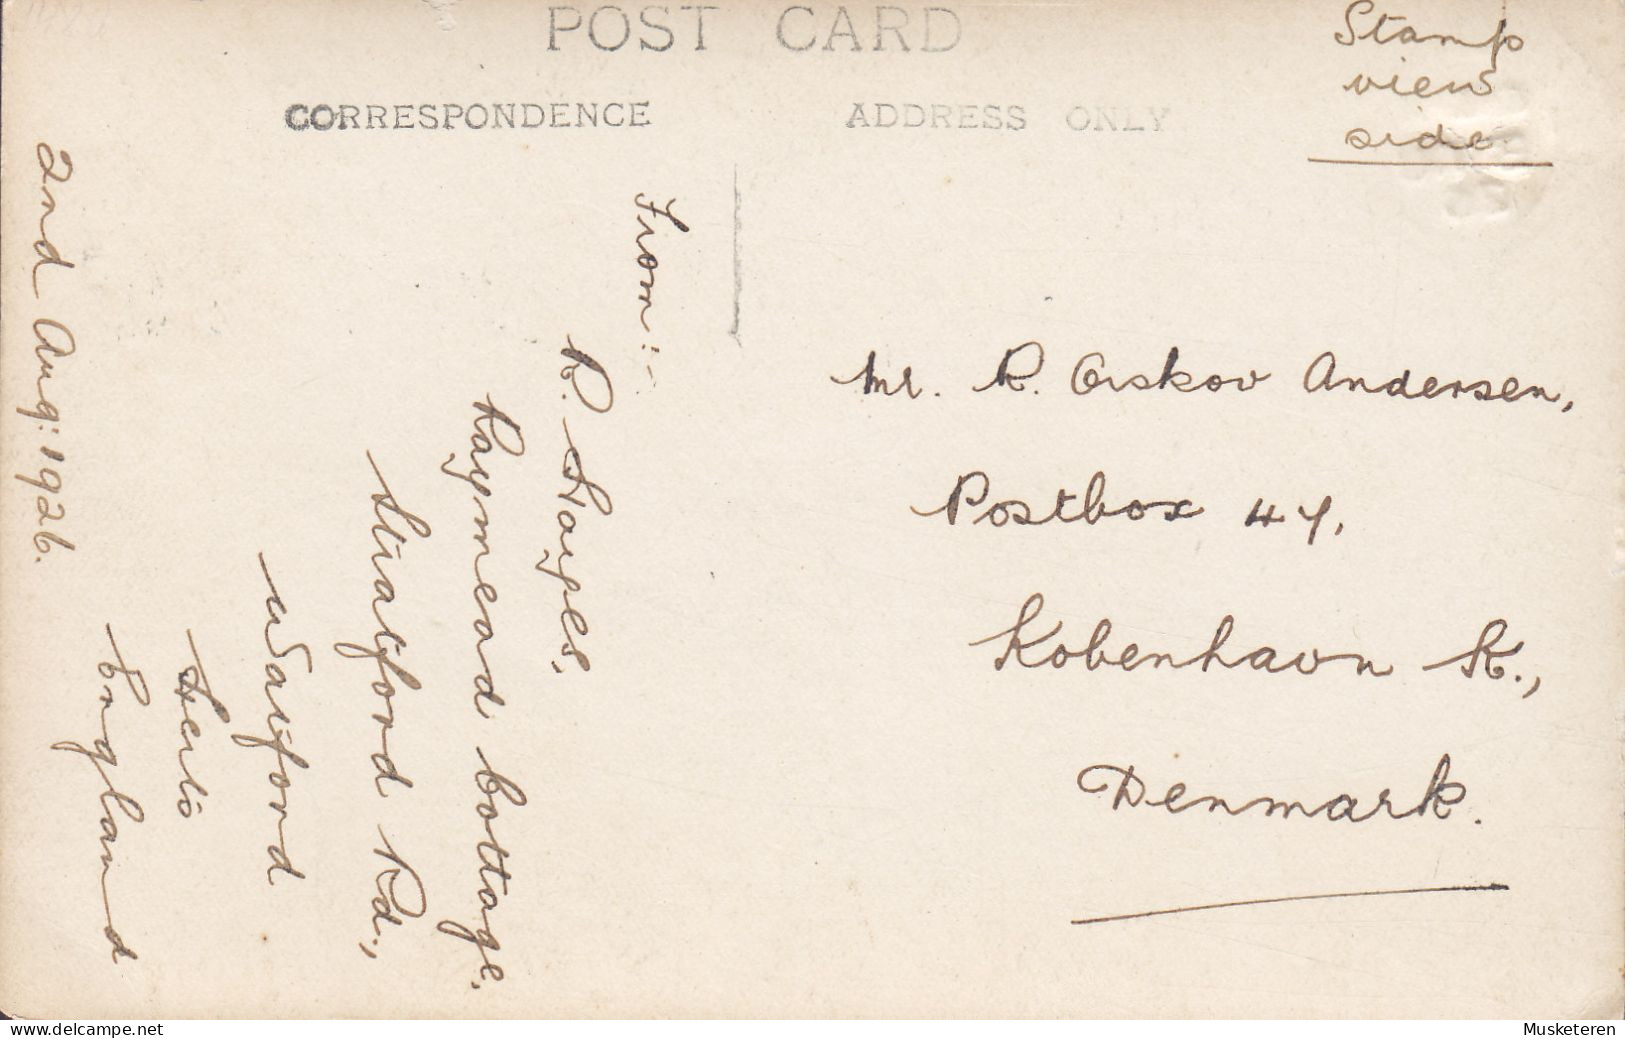 POST CARD
CORRESPONDENCE
ADDRESS ONLY
Stamp
view
side
From:-
R. Hayes.
Raymead Cottage.
Stratford Rd.,
Watford
Herts
England
2nd Aug: 1926.
Mr. R. Orskov Andersen,
Postbox 47.
Kobenhavn K.,
Denmark.
www.delcampe.net
Musketeren